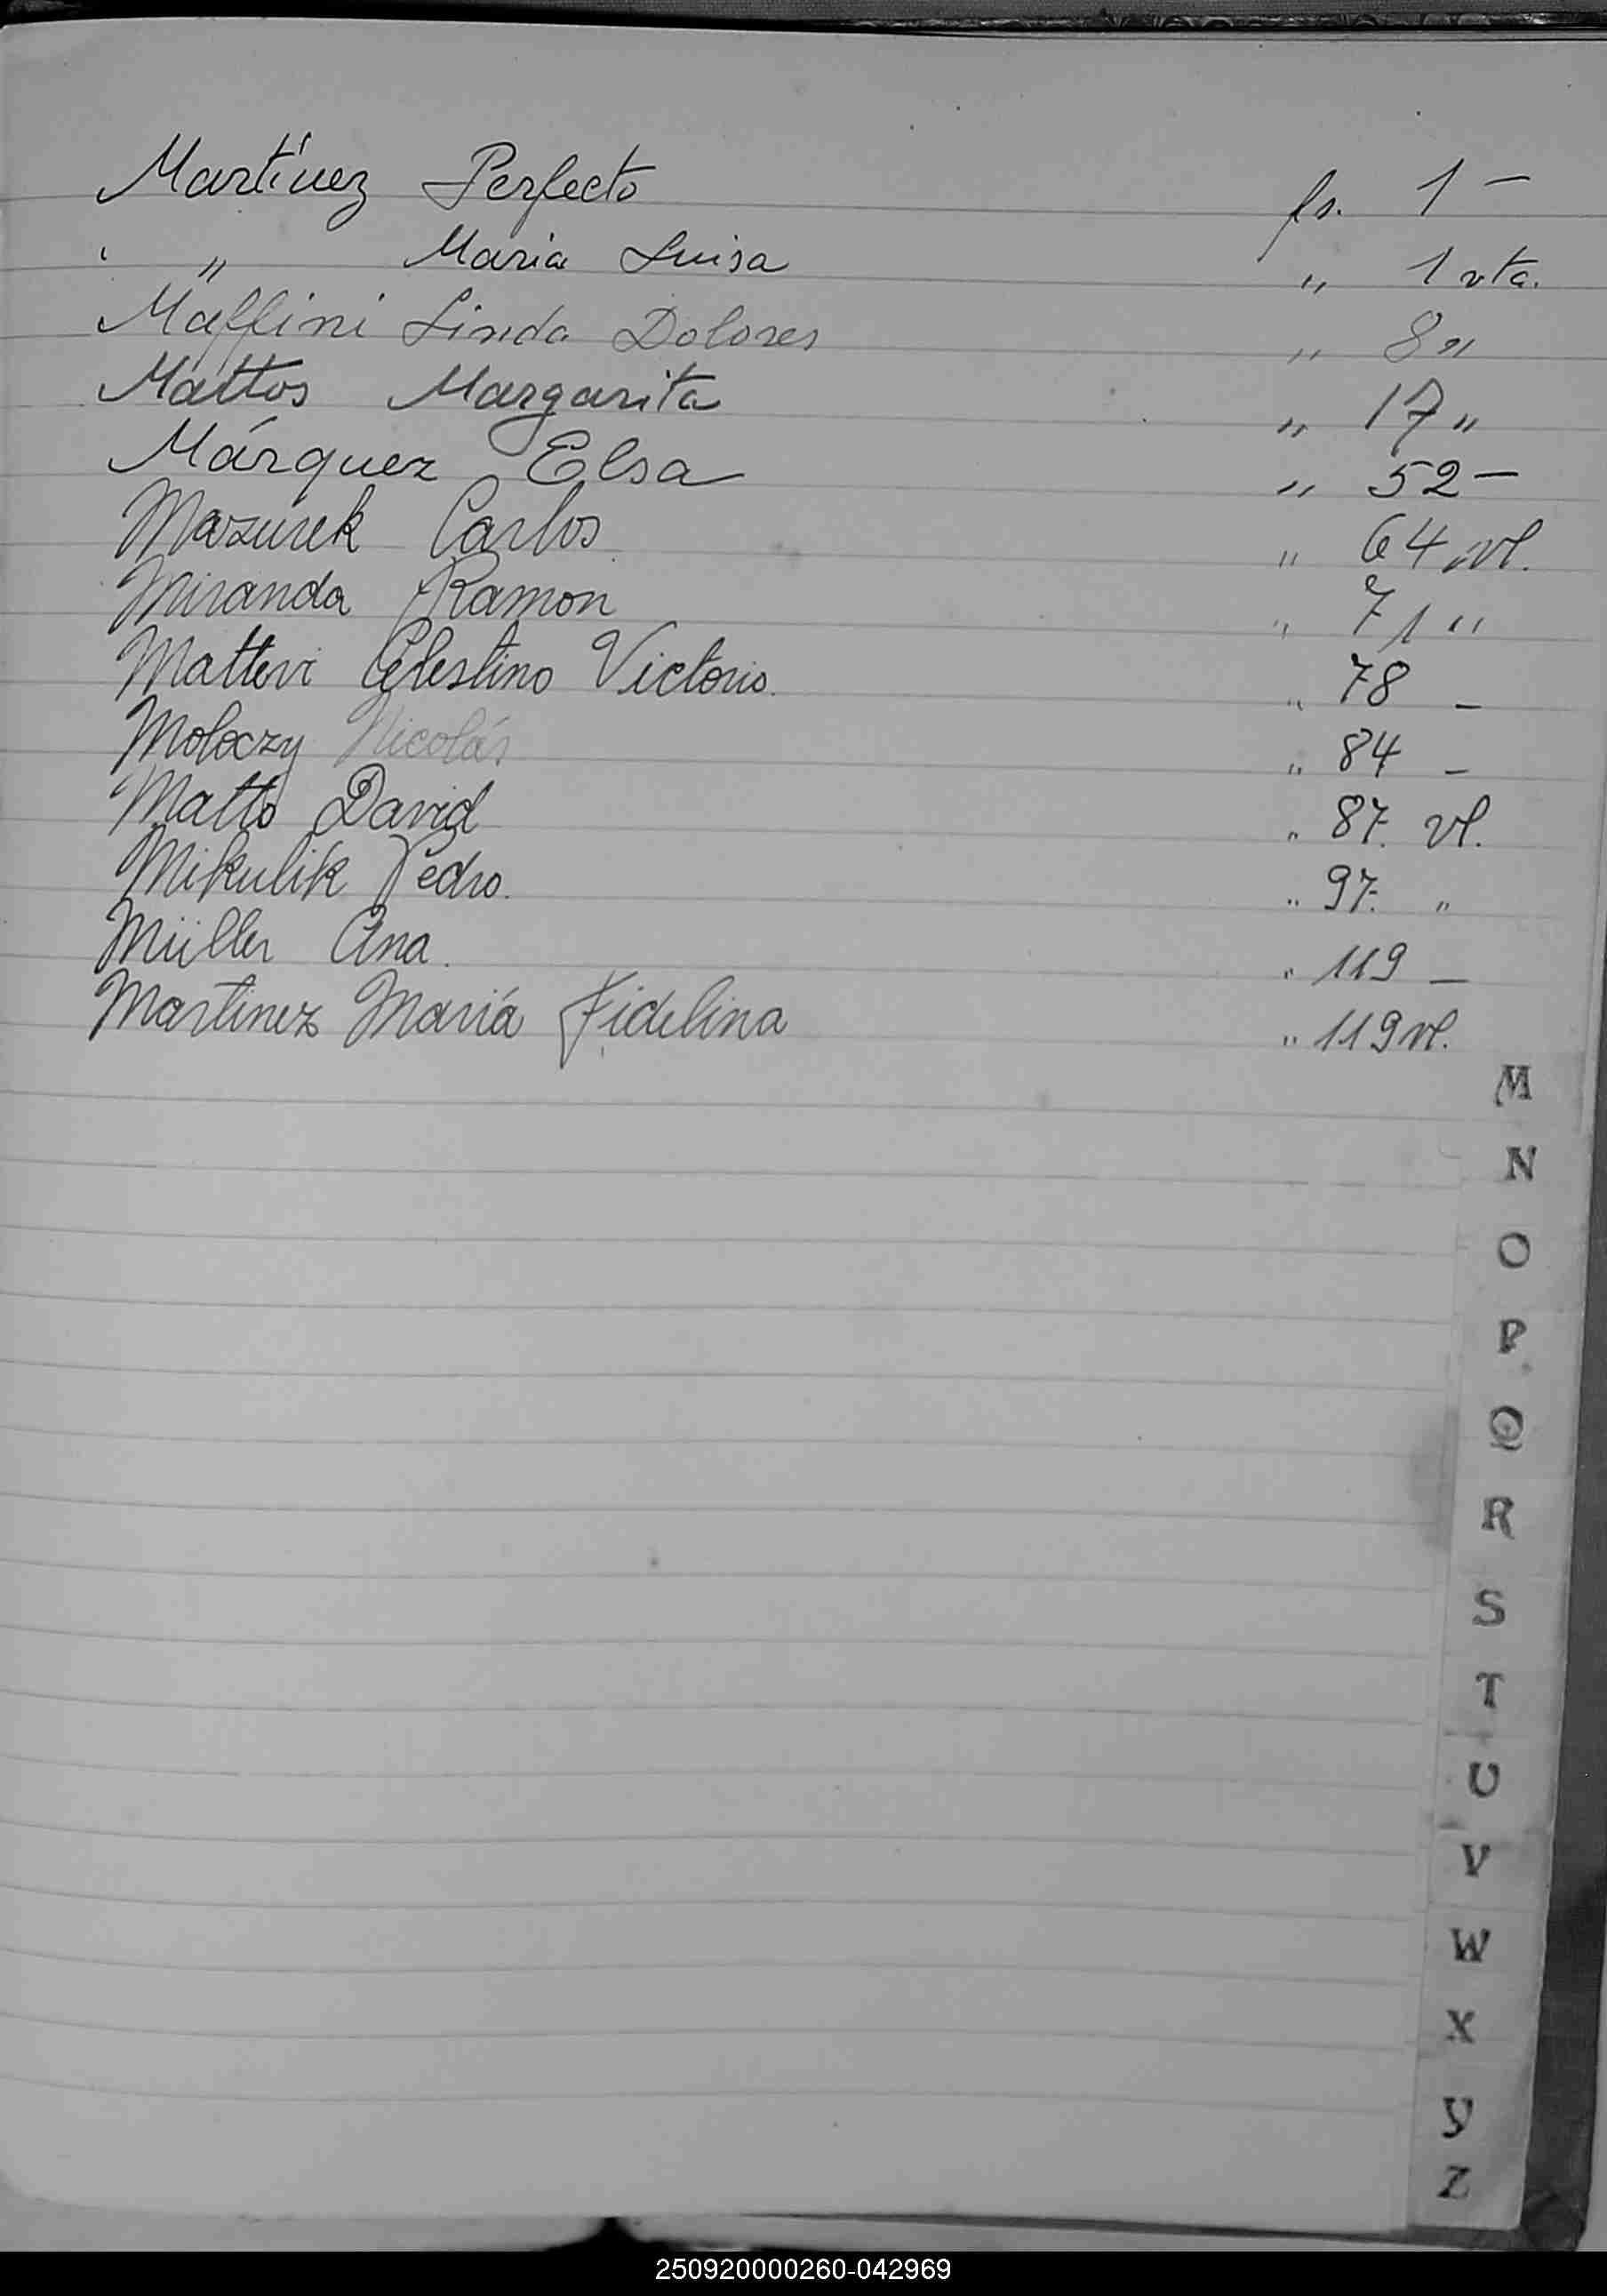 Martínez Perfecto fs. 1 —
" Maria Luisa " 1 vta.
Maffini Linda Dolores " 8 "
Mattos Margarita " 17 "
Márquez Elsa " 52 —
Mazurek Carlos " 64 vt.
Miranda Ramon " 71 "
Mattevi Celestino Victorio. " 78 —
Moloczy Nicolás " 84 —
Matto David " 87. vt.
Mikulik Pedro. " 97. "
Müller Ana. " 119 —
Martinez Mariá Fidelina " 119 vt.
M
N
O
P
Q
R
S
T
U
V
W
X
Y
Z
250920000260-042969